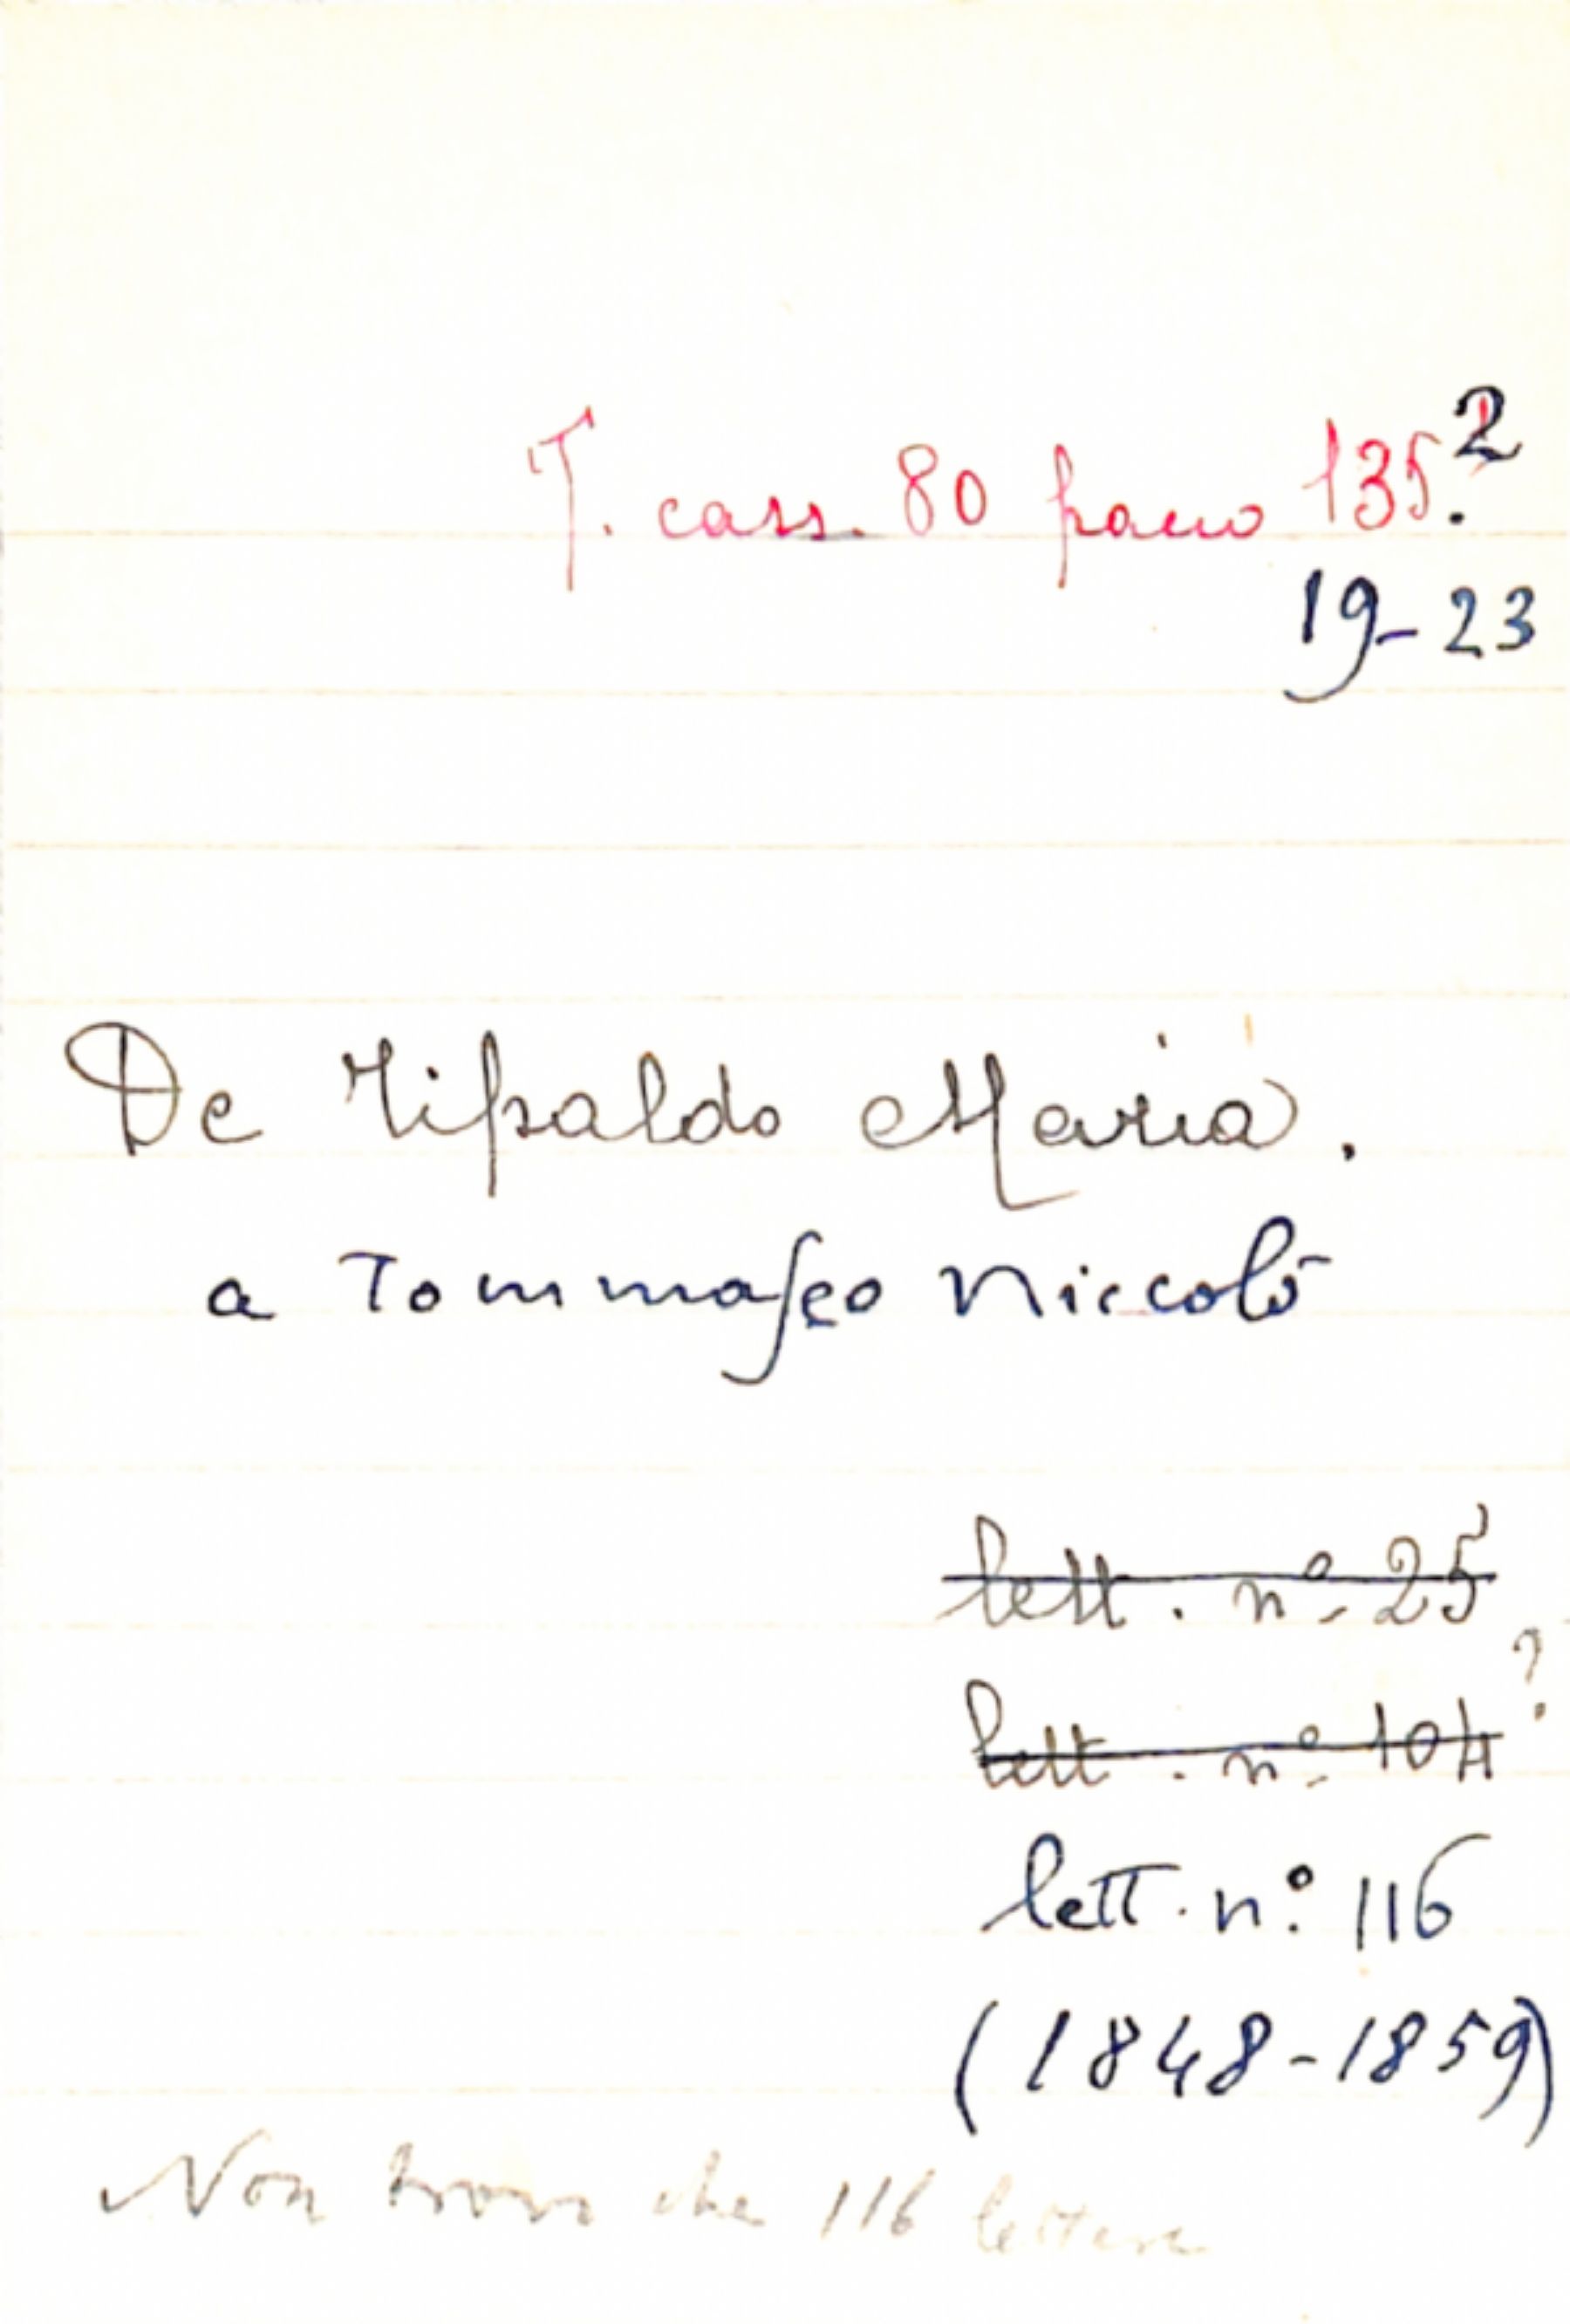 T. cass. 80 pacco 135.2
19-23
De Tipaldo Maria.
a Tommaseo Niccolò
lett. nº. 25
lett. nº. 104?
lett. nº. 116
(1848-1859)
Non trovo che 116 lettere